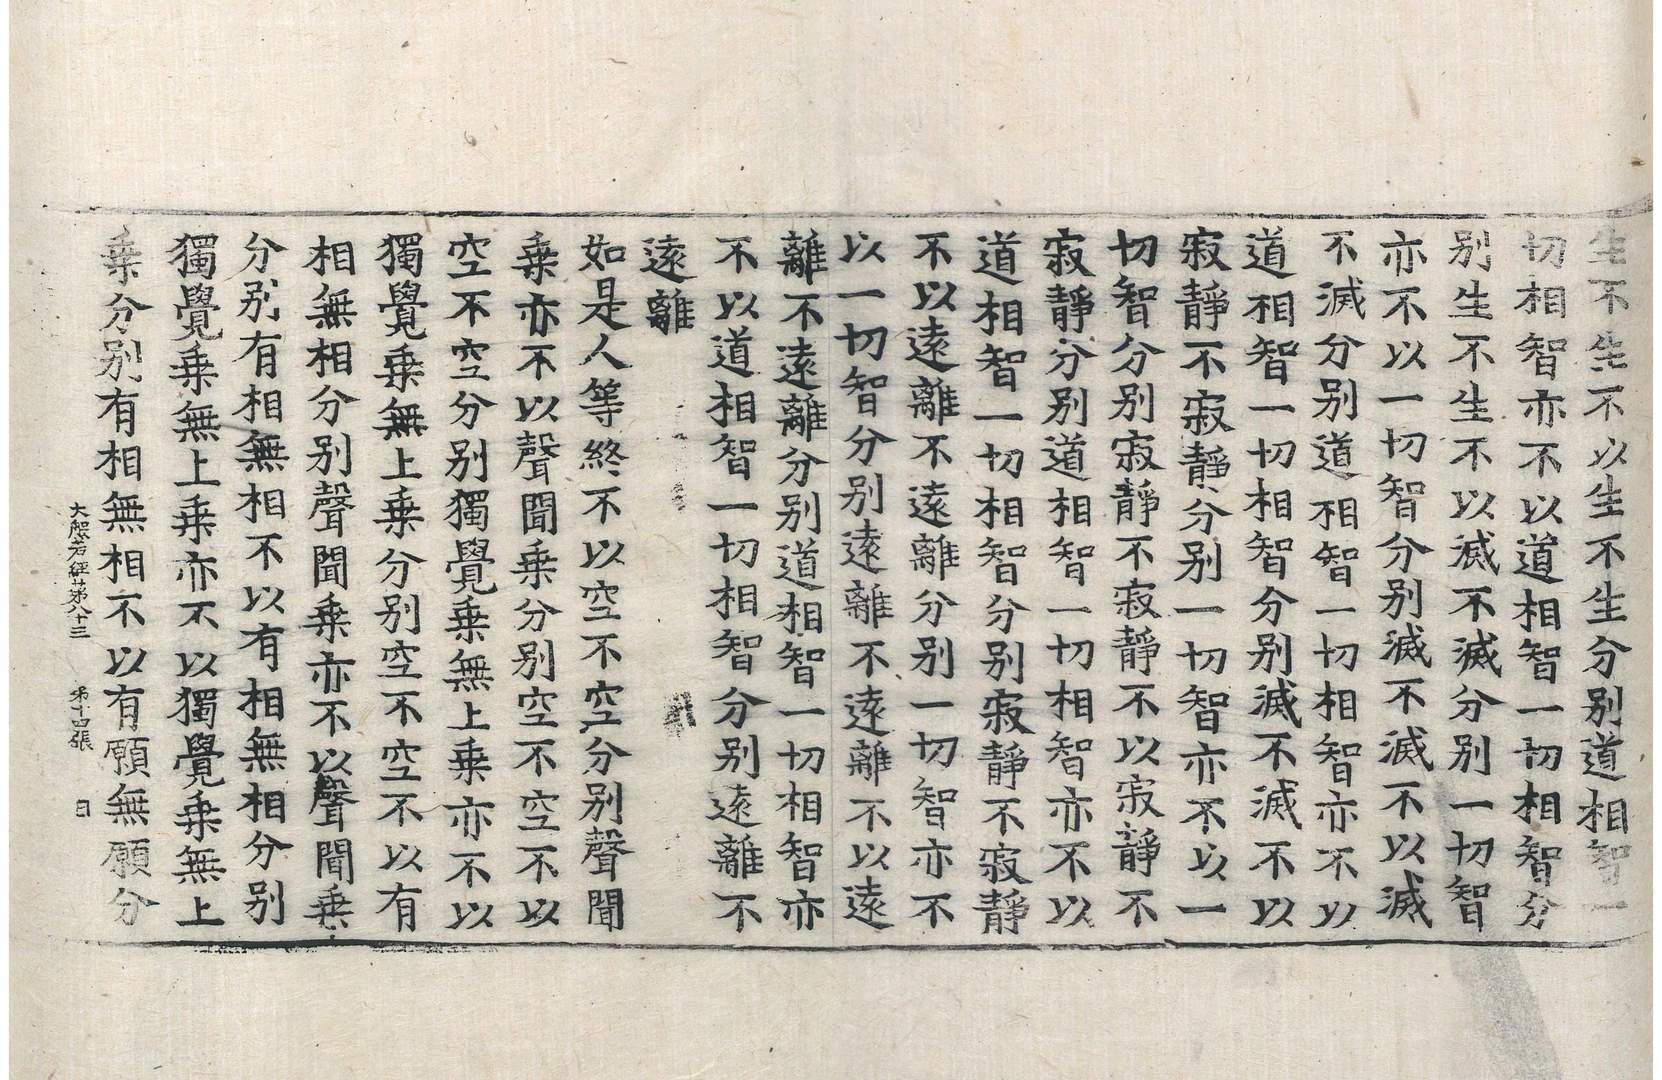 生不生不以生不生分别道相智一
切相智亦不以道相智一切相智分
别生不生不以滅不滅分别一切智
亦不以一切智分别滅不滅不以滅
不滅分别道相智一切相智亦不以
道相智一切相智分别滅不滅不以
寂靜不寂靜分别一切智亦不以一
切智分别寂靜不寂靜不以寂靜不
寂靜分别道相智一切相智亦不以
道相智一切相智分别寂靜不寂靜
不以遠離不遠離分别一切智亦不
以一切智分别遠離不遠離不以遠
離不遠離分别道相智一切相智亦
不以道相智一切相智分别遠離不
遠離
如是人等終不以空不空分别聲聞
乗亦不以聲聞乗分别空不空不以
空不空分别獨覺乗無上乗亦不以
獨覺乗無上乗分别空不空不以有
相無相分别聲聞乗亦不以聲聞乗
分别有相無相不以有相無相分别
獨覺乗無上乗亦不以獨覺乗無上
乗分别有相無相不以有願無願分
大般若經第八十三 第十四張 日